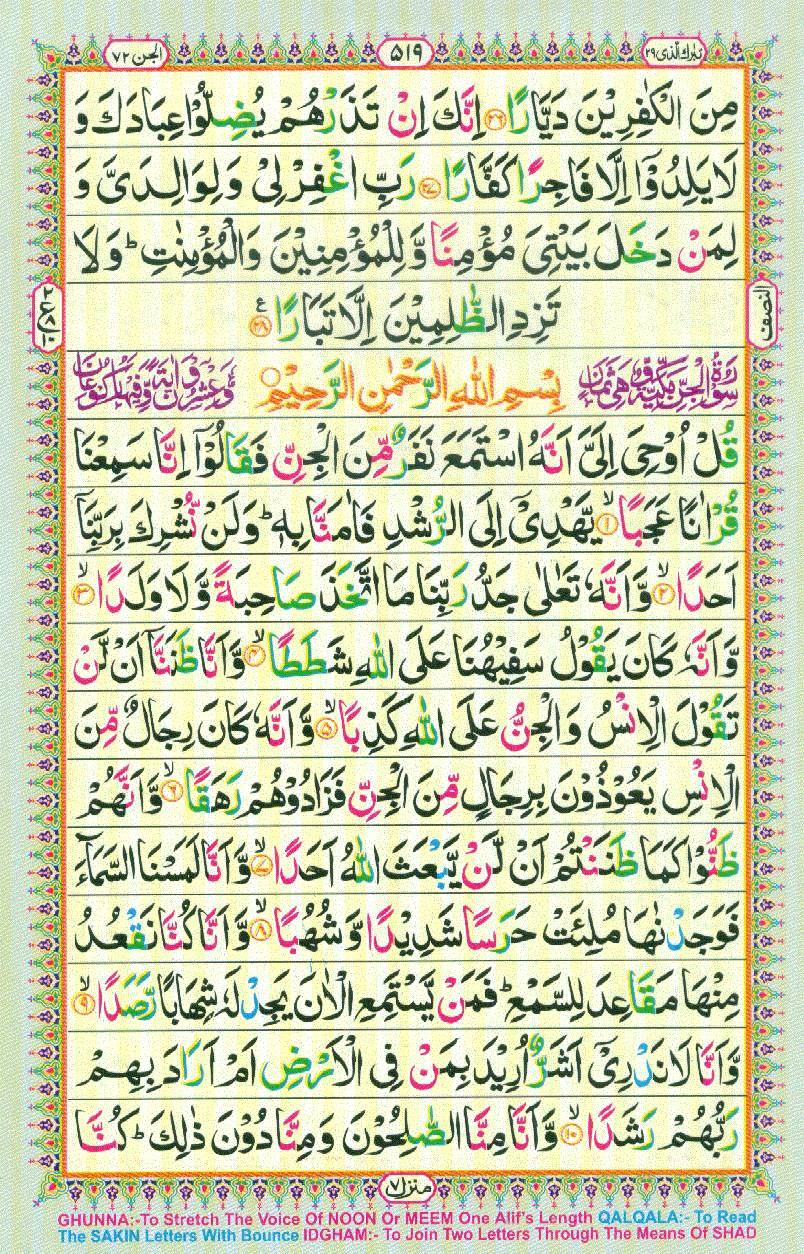 تبٰرك الذی ۲۹
۵۱۹
الجن ۷۲
مِنَ الْكٰفِرِيْنَ دَيَّارًا ﴿۲۶﴾ اِنَّكَ اِنْ تَذَرْهُمْ يُضِلُّوْا عِبَادَكَ وَ
لَا يَلِدُوْۤا اِلَّا فَاجِرًا كَفَّارًا ﴿۲۷﴾ رَبِّ اغْفِرْ لِىْ وَلِوَالِدَىَّ وَ
لِمَنْ دَخَلَ بَيْتِىَ مُؤْمِنًا وَّ لِلْمُؤْمِنِيْنَ وَالْمُؤْمِنٰتِ ؕ وَلَا
تَزِدِ الظّٰلِمِيْنَ اِلَّا تَبَارًا ﴿۲۸﴾ ع
النصف
سُوْرَةُ الْجِنِّ مَكِّيَّةٌ وَّهِىَ ثَمَانٍ
بِسْمِ اللهِ الرَّحْمٰنِ الرَّحِيْمِ
وَّعِشْرُوْنَ اٰيَةً وَّفِيْهَا رُكُوْعَانِ
قُلْ اُوْحِىَ اِلَىَّ اَنَّهُ اسْتَمَعَ نَفَرٌ مِّنَ الْجِنِّ فَقَالُوْۤا اِنَّا سَمِعْنَا
قُرْاٰنًا عَجَبًا ﴿۱﴾ۙ يَّهْدِىْۤ اِلَى الرُّشْدِ فَاٰمَنَّا بِهٖ ؕ وَلَنْ نُّشْرِكَ بِرَبِّنَاۤ
اَحَدًا ﴿۲﴾ۙ وَّاَنَّهٗ تَعٰلٰى جَدُّ رَبِّنَا مَا اتَّخَذَ صَاحِبَةً وَّلَا وَلَدًا ﴿۳﴾ۙ
وَّاَنَّهٗ كَانَ يَقُوْلُ سَفِيْهُنَا عَلَى اللهِ شَطَطًا ﴿۴﴾ۙ وَّاَنَّا ظَنَنَّاۤ اَنْ لَّنْ
تَقُوْلَ الْاِنْسُ وَالْجِنُّ عَلَى اللهِ كَذِبًا ﴿۵﴾ۙ وَّاَنَّهٗ كَانَ رِجَالٌ مِّنَ
الْاِنْسِ يَعُوْذُوْنَ بِرِجَالٍ مِّنَ الْجِنِّ فَزَادُوْهُمْ رَهَقًا ﴿۶﴾ۙ وَّاَنَّهُمْ
ظَنُّوْا كَمَا ظَنَنْتُمْ اَنْ لَّنْ يَّبْعَثَ اللهُ اَحَدًا ﴿۷﴾ۙ وَّاَنَّا لَمَسْنَا السَّمَآءَ
فَوَجَدْنٰهَا مُلِئَتْ حَرَسًا شَدِيْدًا وَّشُهُبًا ﴿۸﴾ۙ وَّاَنَّا كُنَّا نَقْعُدُ
مِنْهَا مَقَاعِدَ لِلسَّمْعِ ؕ فَمَنْ يَّسْتَمِعِ الْاٰنَ يَجِدْ لَهٗ شِهَابًا رَّصَدًا ﴿۹﴾ۙ
وَّاَنَّا لَا نَدْرِىْۤ اَشَرٌّ اُرِيْدَ بِمَنْ فِى الْاَرْضِ اَمْ اَرَادَ بِهِمْ
رَبُّهُمْ رَشَدًا ﴿۱۰﴾ۙ وَّاَنَّا مِنَّا الصّٰلِحُوْنَ وَمِنَّا دُوْنَ ذٰلِكَ ؕ كُنَّا
منزل ۷
GHUNNA:-To Stretch The Voice Of NOON Or MEEM One Alif's Length QALQALA:- To Read
The SAKIN Letters With Bounce IDGHAM:- To Join Two Letters Through The Means Of SHAD